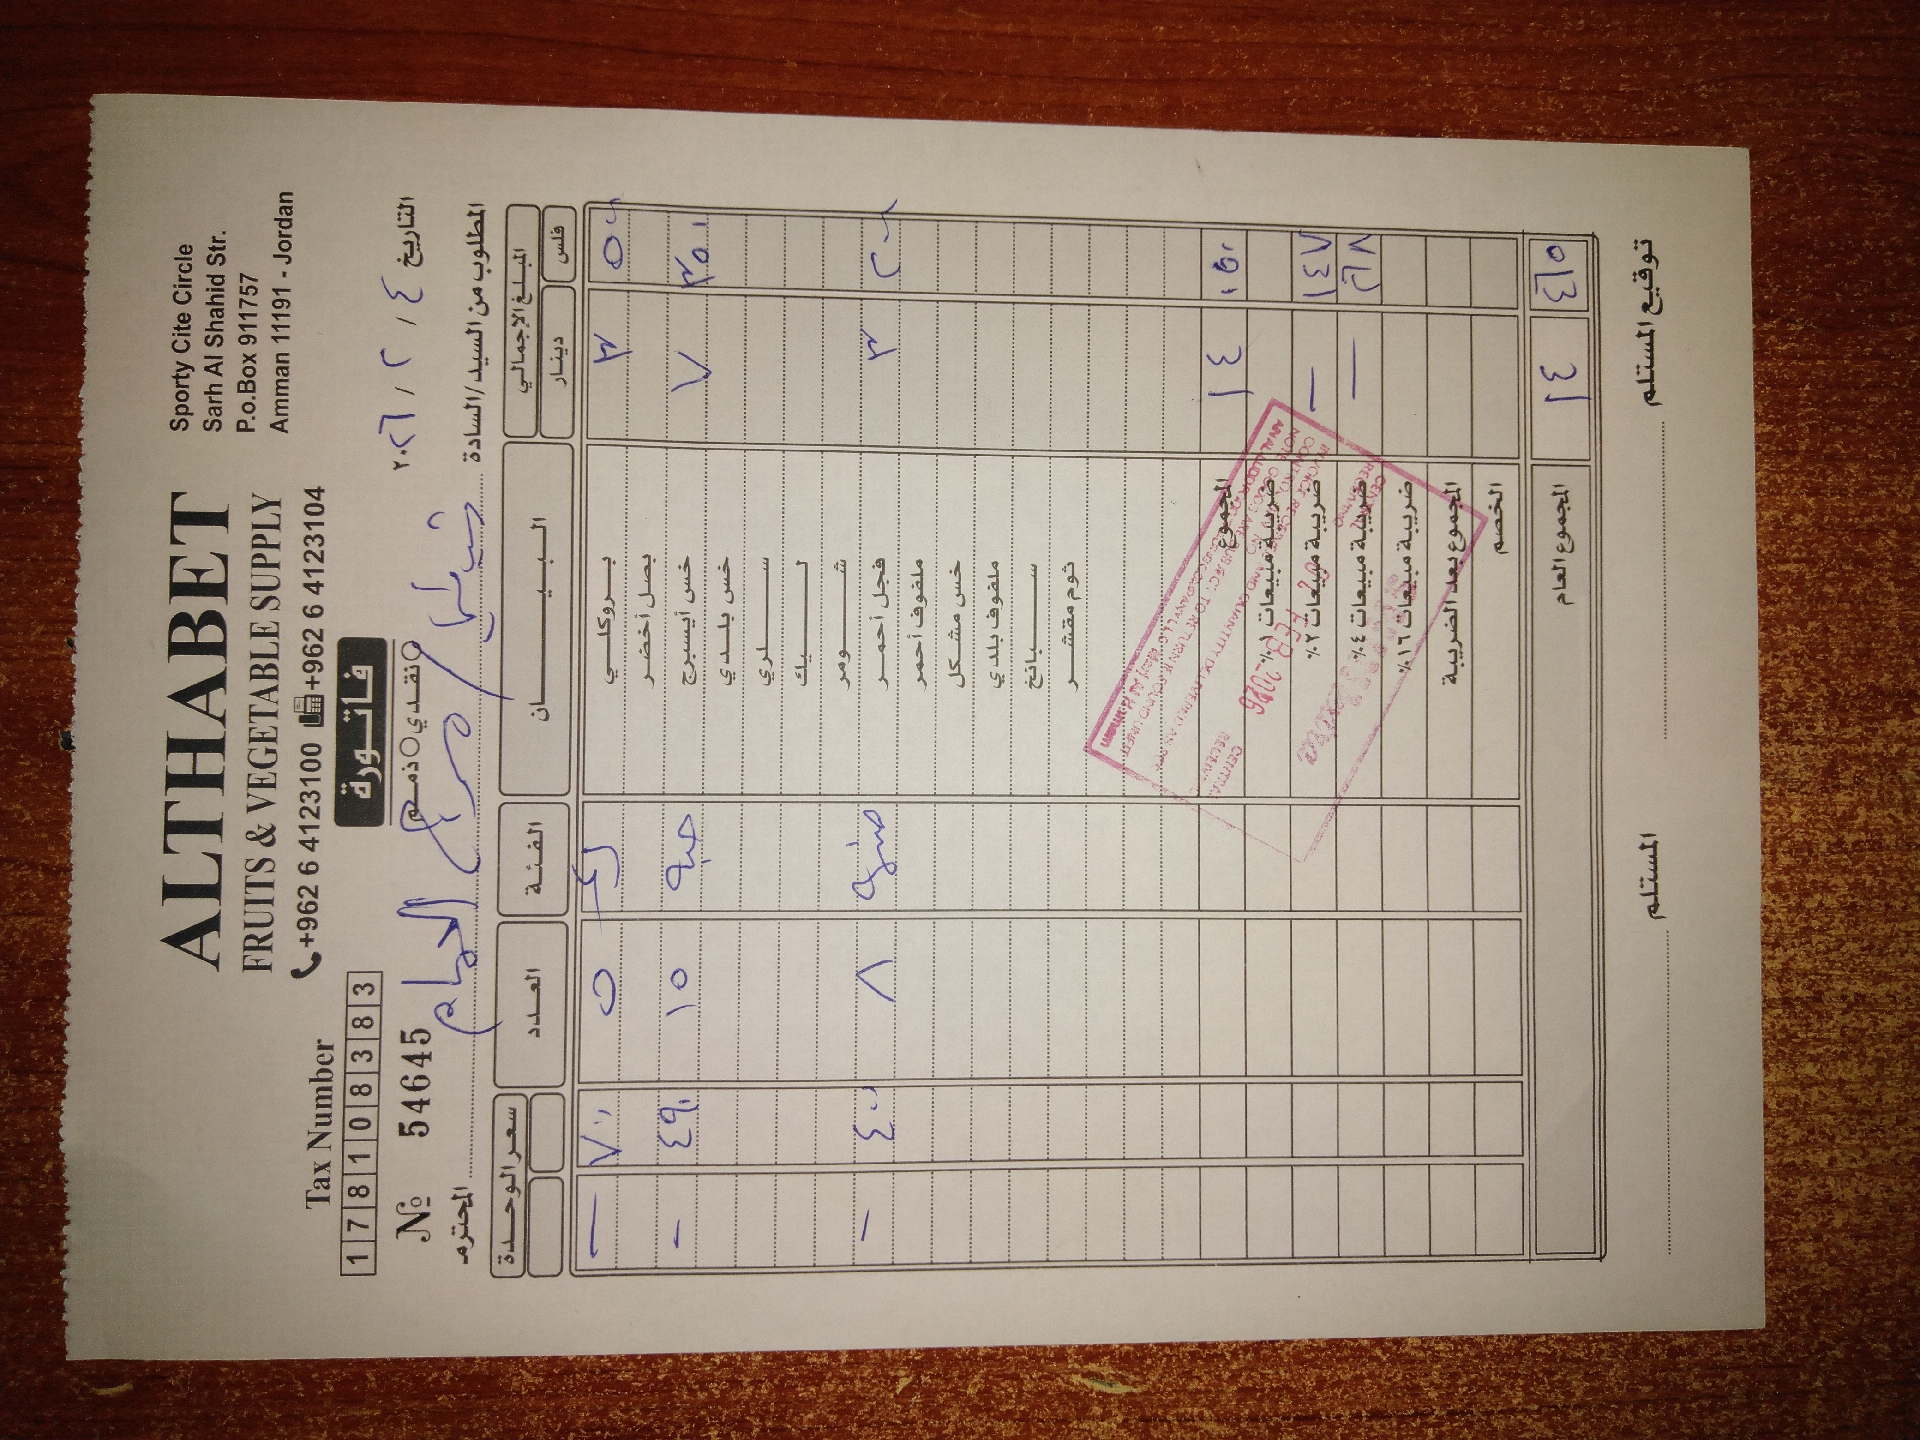 ALTHABET
FRUITS & VEGETABLE SUPPLY
+962 6 4123100 +962 6 4123104
Sporty Cite Circle
Sarh Al Shahid Str.
P.o.Box 911757
Amman 11191 - Jordan
Tax Number
178108383
فاتورة
نقدي ذمم
№ 54645
التاريخ ٤ / ٢ / ٢٠٢٦
المطلوب من السيد/السادة المحترم
المبلغ الإجمالي البيان الفئة العدد سعر الوحدة
فلس دينار
٥٠٠ ٣ بروكلي ٥ ٧٠٠ —
بصل أخضر
٣٥٠ ٧ خس أيسبرج حبه ١٥ ٤٩٠ -
خس بلدي
سلري
ليك
شومر
٢٠٠ ٣ فجل أحمر ٨ ٤٠٠ -
ملفوف أحمر
خس مشكل
ملفوف بلدي
سبانخ
ثوم مقشر
٠٥٠ ١٤ المجموع
ضريبة مبيعات ١٪
١٤٧ — ضريبة مبيعات ٢٪
٢٦٨ — ضريبة مبيعات ٤٪
ضريبة مبيعات ١٦٪
المجموع بعد الضريبة
الخصم
٤٦٥ ١٤ المجموع العام
FEB 2026
توقيع المستلم
المستلم